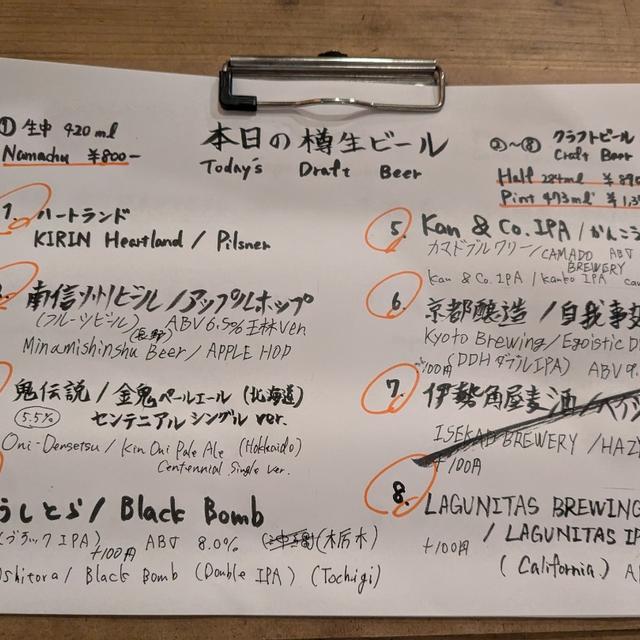 本日の樽生ビール
Today's Draft Beer
① 生中 420ml
Namachu ¥800-
②~⑧ クラフトビール
Craft Beer
Half 284ml ¥890
Pint 473ml ¥1,3
1. ハートランド
KIRIN Heartland / Pilsner
南信州ビール/アップルホップ
(フルーツビール) ABV6.5% 王林ver.
(長野)
Minamishinshu Beer/APPLE HOP
鬼伝説/金鬼ペールエール(北海道)
5.5% センテニアル シングル ver.
Oni-Densetsu/Kin Oni Pale Ale (Hokkaido)
Centennial Single ver.
うしとら/Black Bomb
(ブラックIPA) +100円 ABV 8.0% (栃木)
Oshitora/Black Bomb (Double IPA) (Tochigi)
5. Kan & Co. IPA/かんこう
カマドブルワリー/CAMADO BREWERY ABV
Kan & Co. IPA / Kanko IPA
6. 京都醸造/自我
Kyoto Brewing/Egoistic D
+100円 (DDHダブルIPA) ABV9.
7. 伊勢角屋麦酒/ヘイジ
ISEKADO BREWERY /HAZ
+100円
8. LAGUNITAS BREWING
/ LAGUNITAS IP
+100円 (California) A